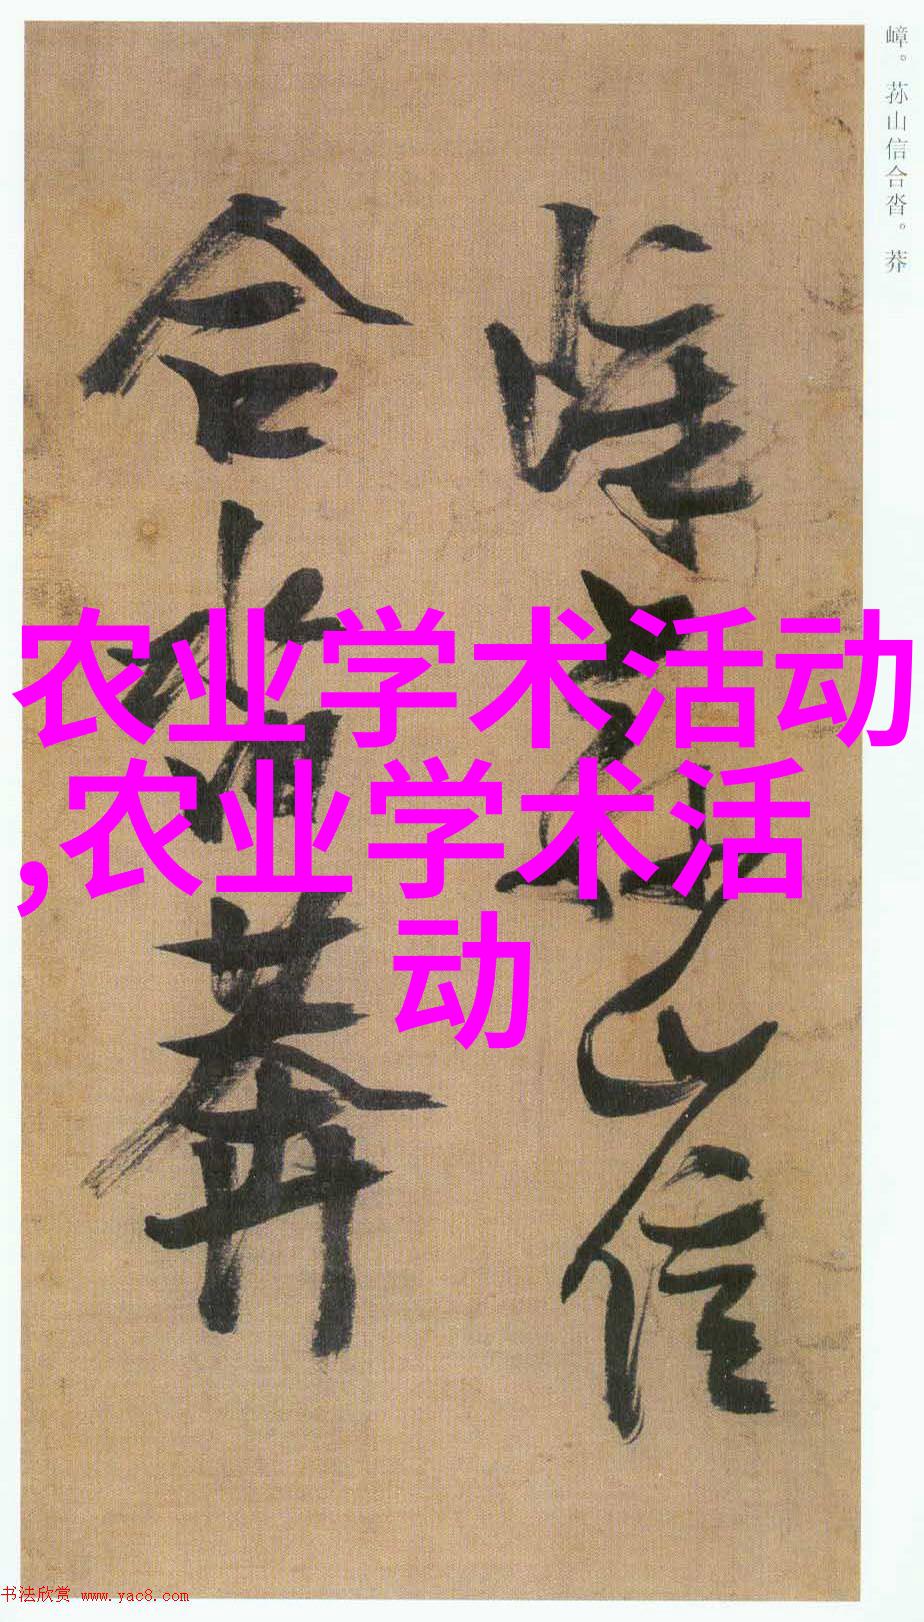 嶂。荪山信合沓。莽
嶂荪山信
合沓莽
农业学术活动
,农业学术活
动
书法欣赏 www.yac8.com